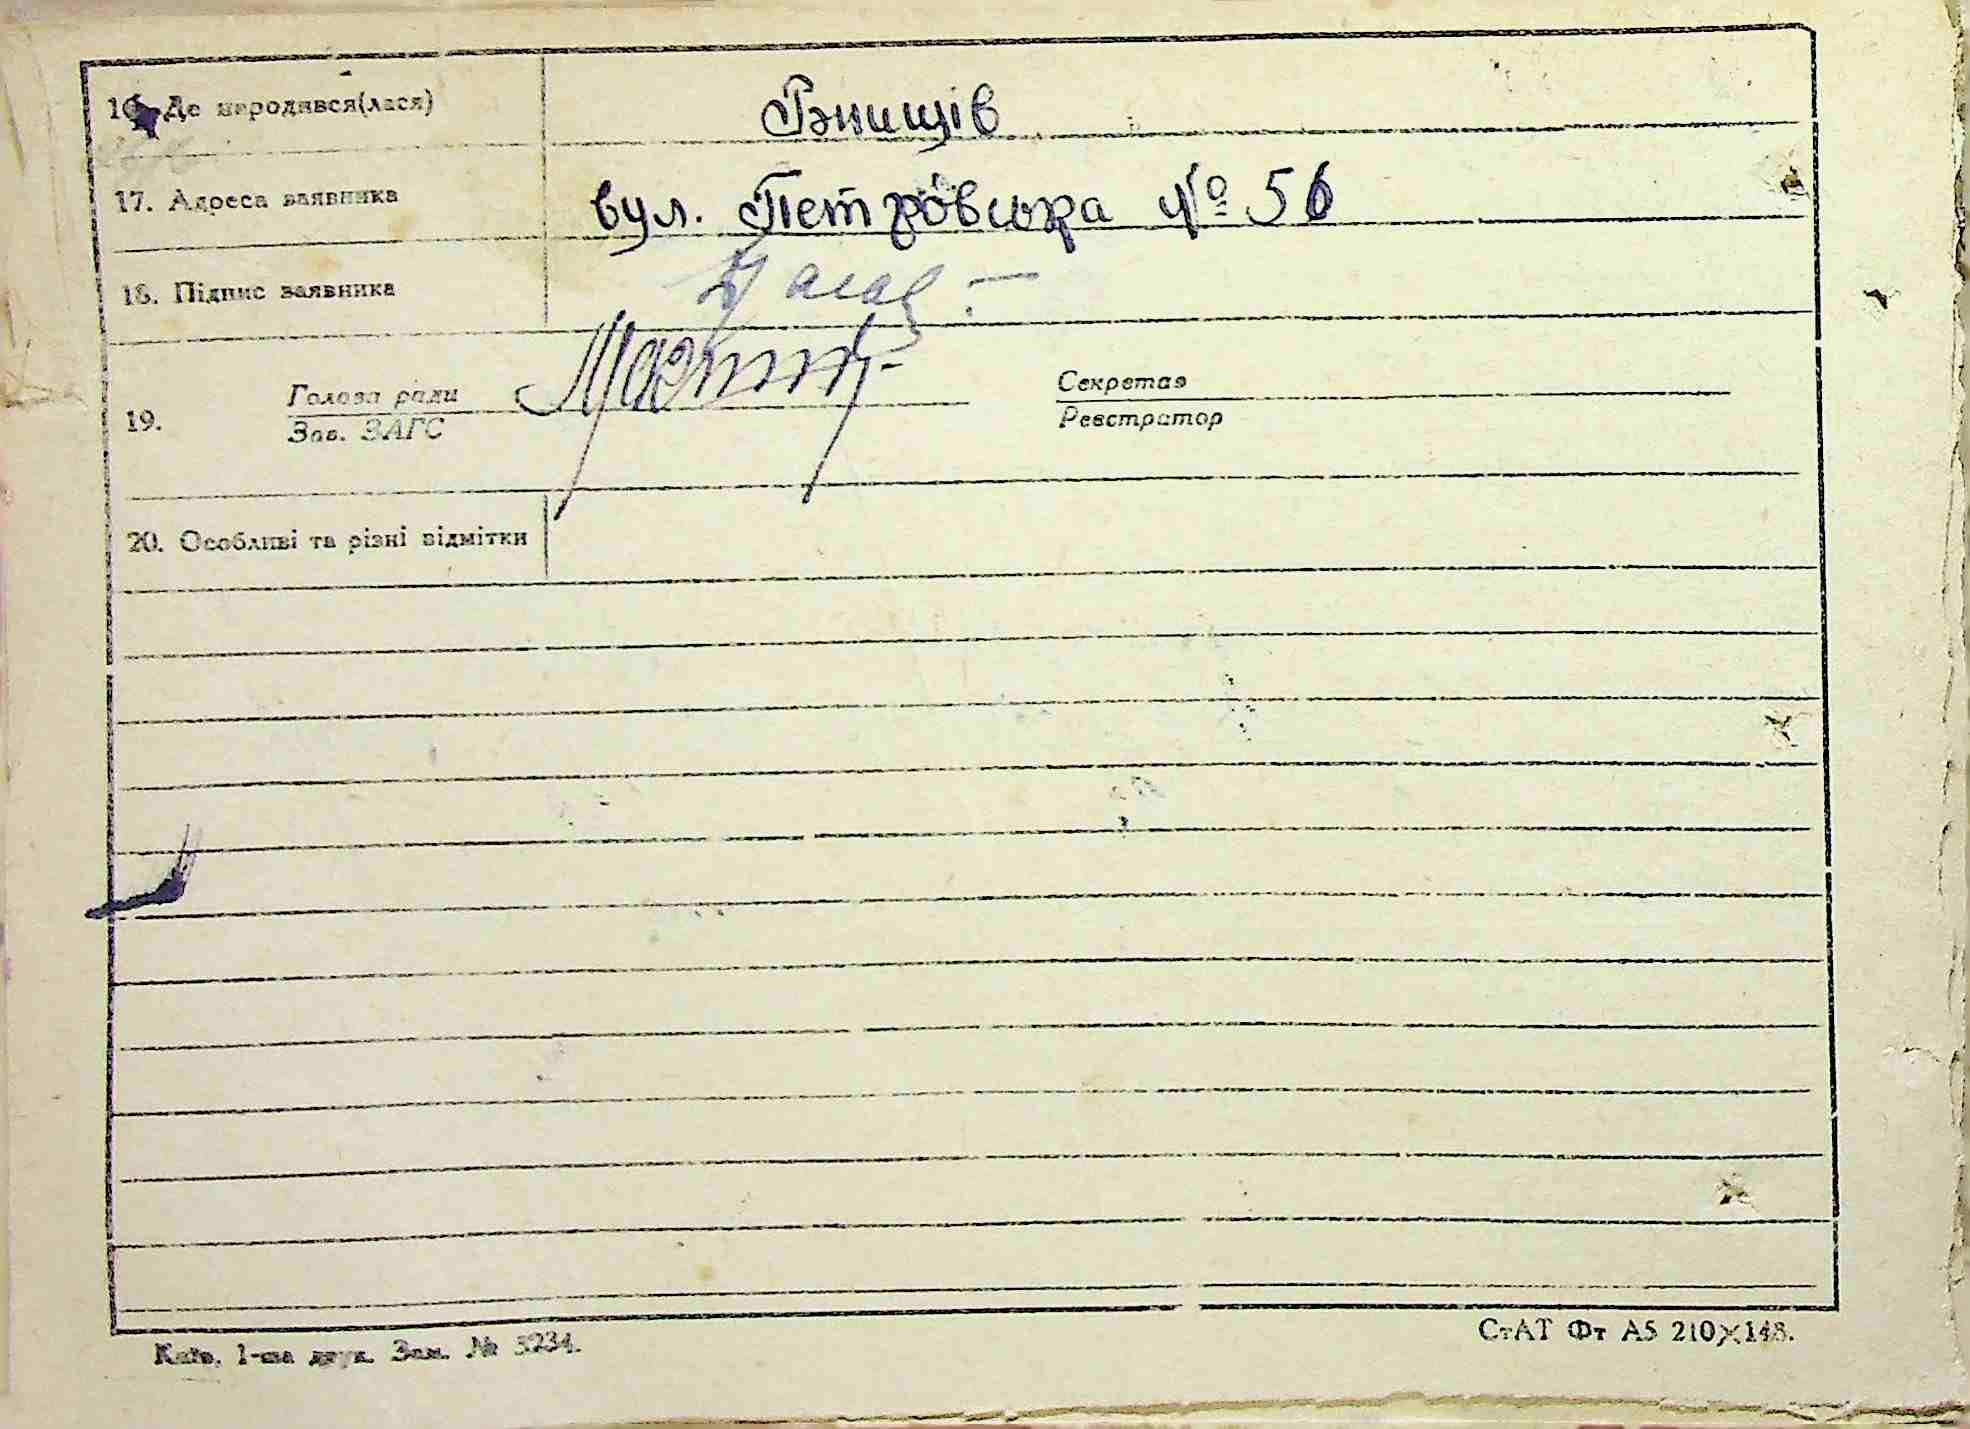 16. Де народився(лася) Гжищів
17. Адреса заявника вул. Петровська № 56
18. Підпис заявника
19. Голова ради Секретар
Зав. ЗАГС Реєстратор
20. Особливі та різні відмітки
Київ, 1-ша друк. Зам. № 5234.
СтАТ Фт А5 210×148.